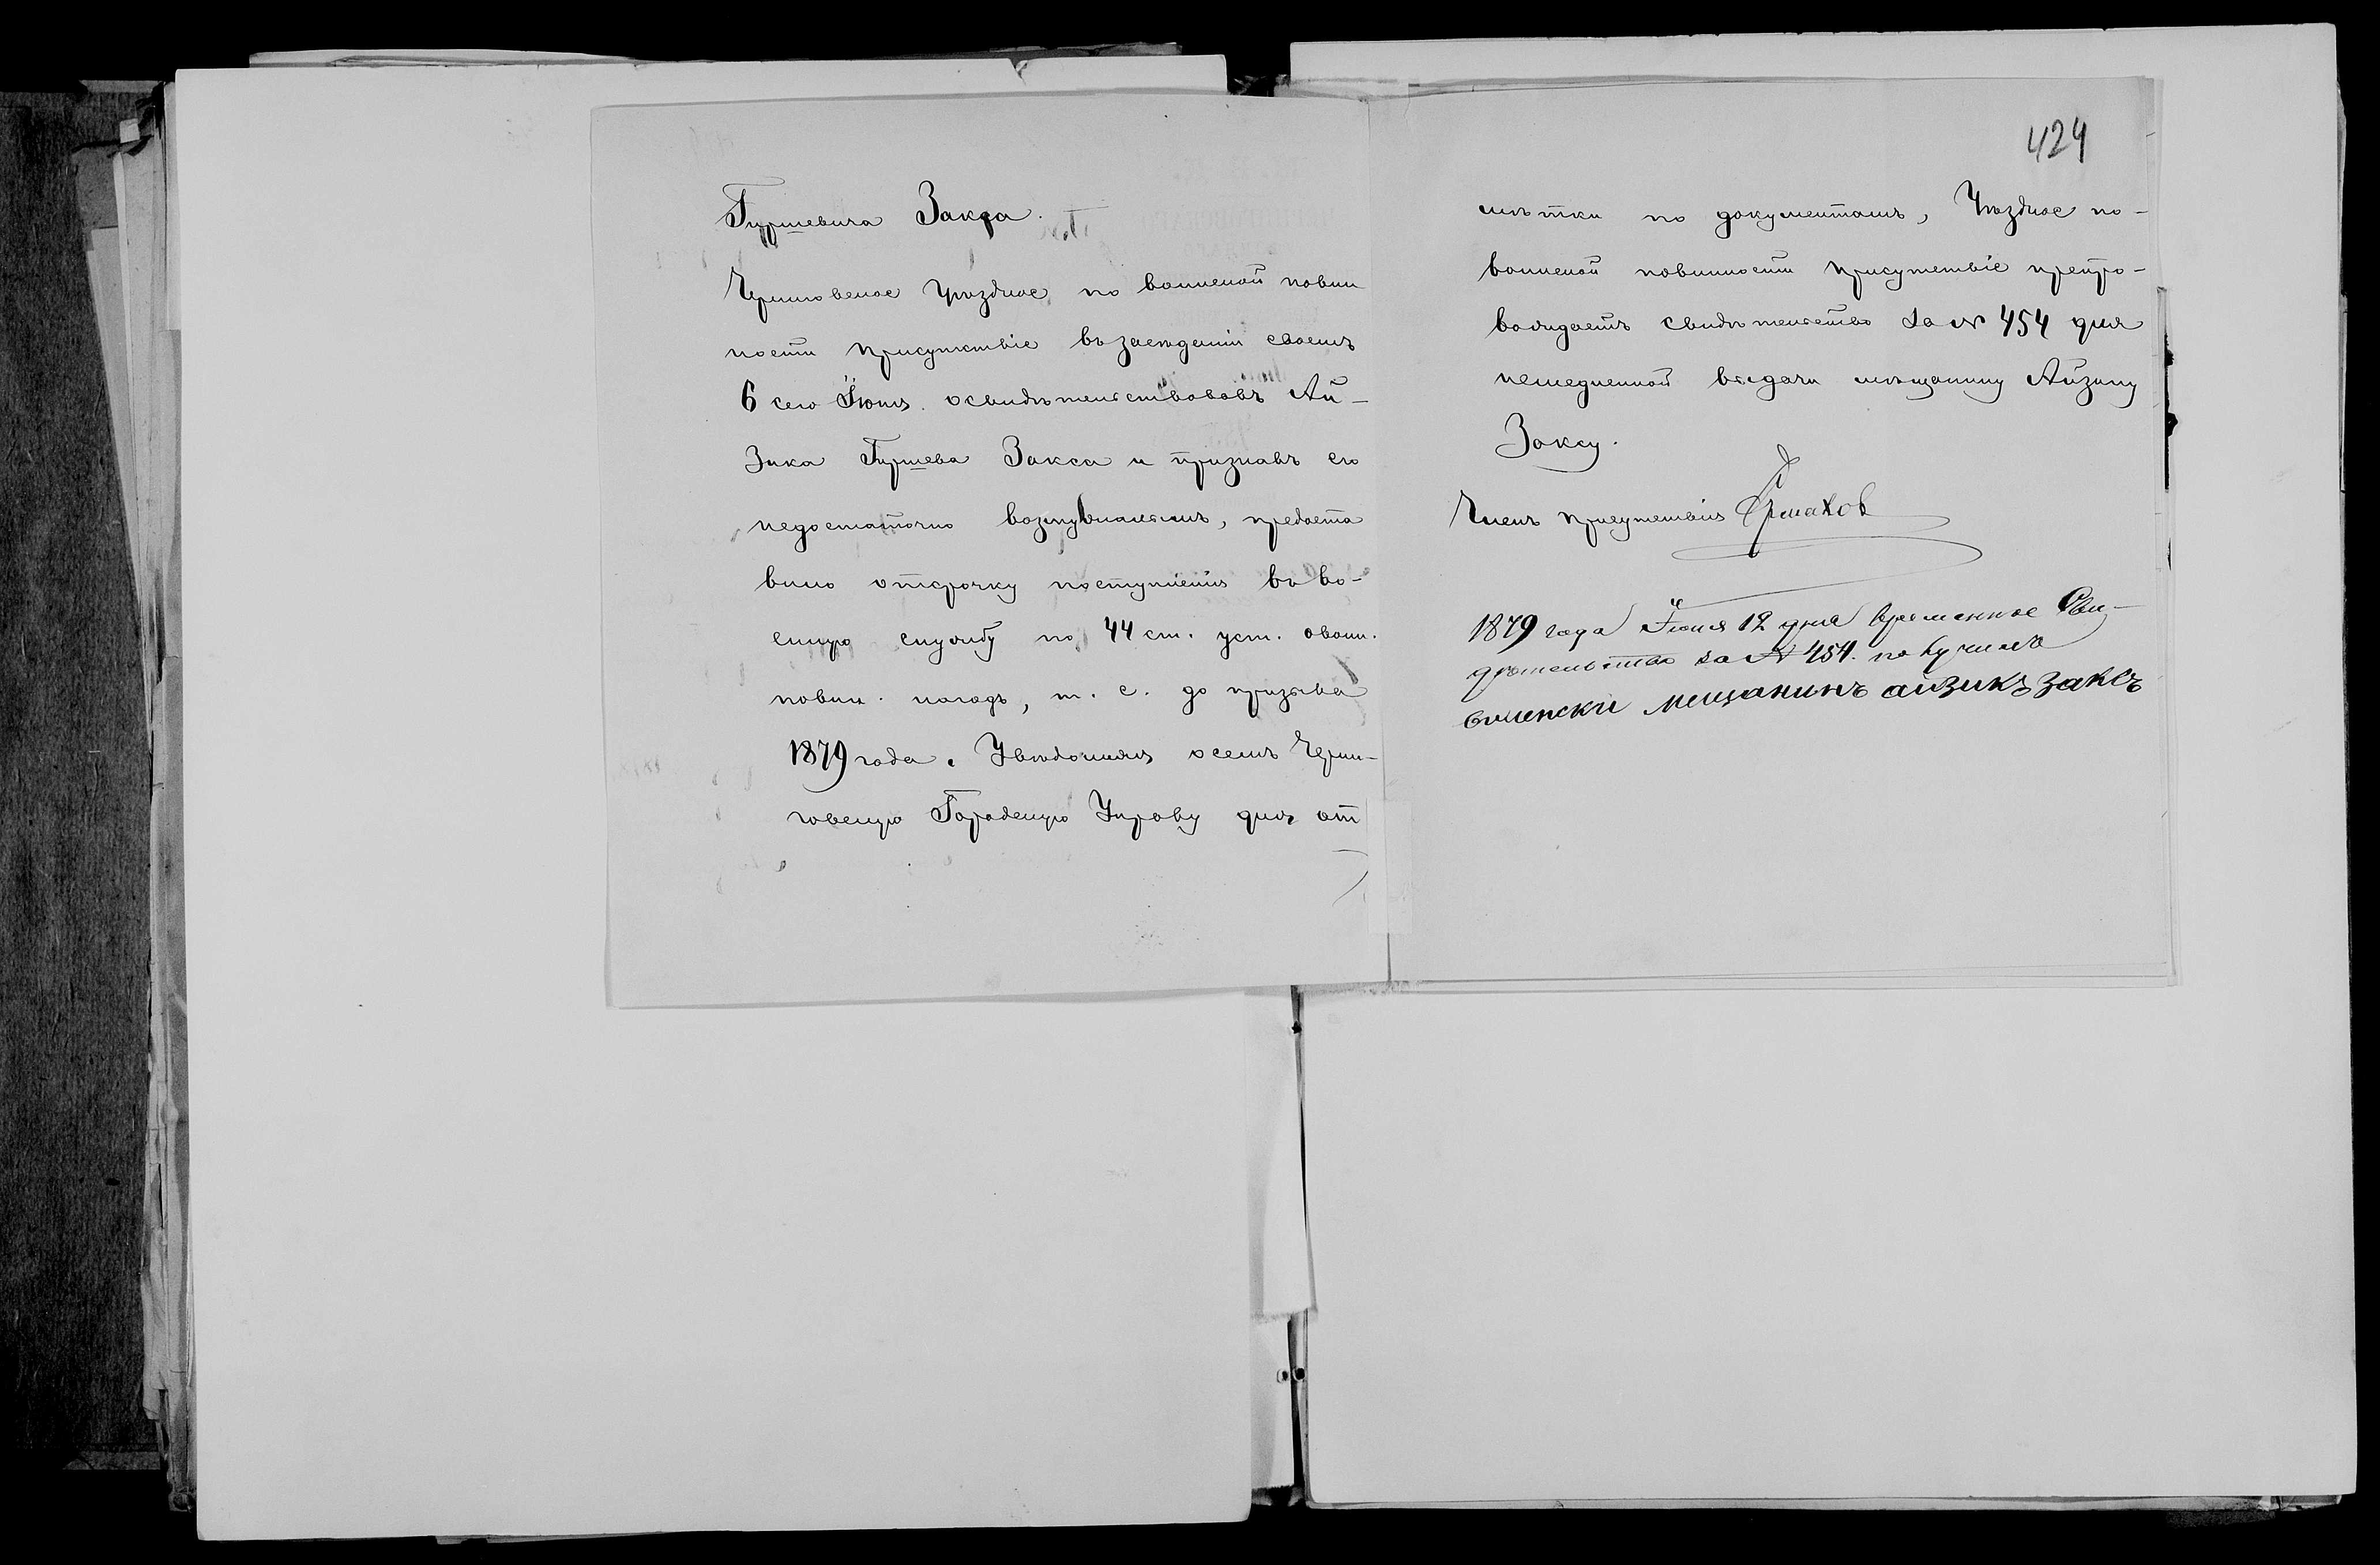 Гиршевича Закса.
Черниговское Уѣздное по воинской повин
ности Присутствіе въ засѣданіи своемъ
6 сего Іюня освидѣтельствовавъ Ай-
зика Гиршева Закса и признавъ его
недостаточно возмужалымъ, предоста
вило отсрочку поступленія въ во-
енную службу по 44 ст. уст. о воин.
повин. на годъ, т. е. до призыва
1879 года. Увѣдомляя о семъ Черни-
говскую Городскую Управу для от
424
мѣтки по документамъ, Уѣздное по
воинской повинности Присутствіе препро-
вождаетъ свидѣтельство за № 454 для
немедленной выдачи мѣщанину Айзику
Заксу.
Членъ Присутствія Ермаков
1879 года Іюня 12 дня временное Сви-
дѣтельство за № 454. получилъ
мещанинъ айзикъ заксъ